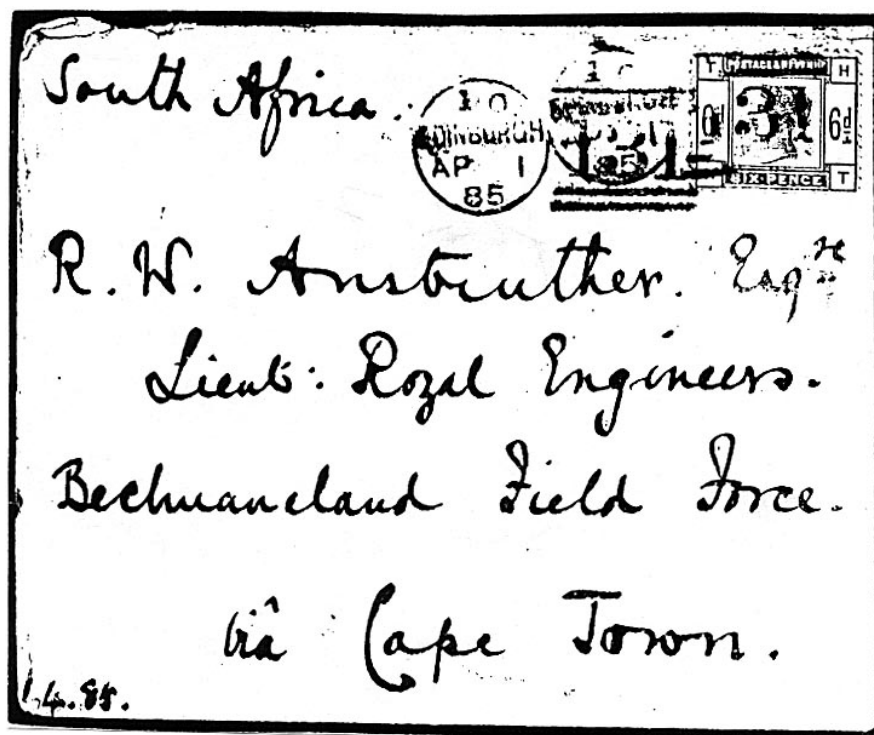 South Africa.
1 O
EDINBURGH
AP 1
85
131
POSTAGE & REVENUE
T H
6d 6d
SIX-PENCE
T
R. W. Anstruther. Esqre
Lieut: Royal Engineers.
Bechuanaland Field Force.
viâ Cape Town.
1.4.85.